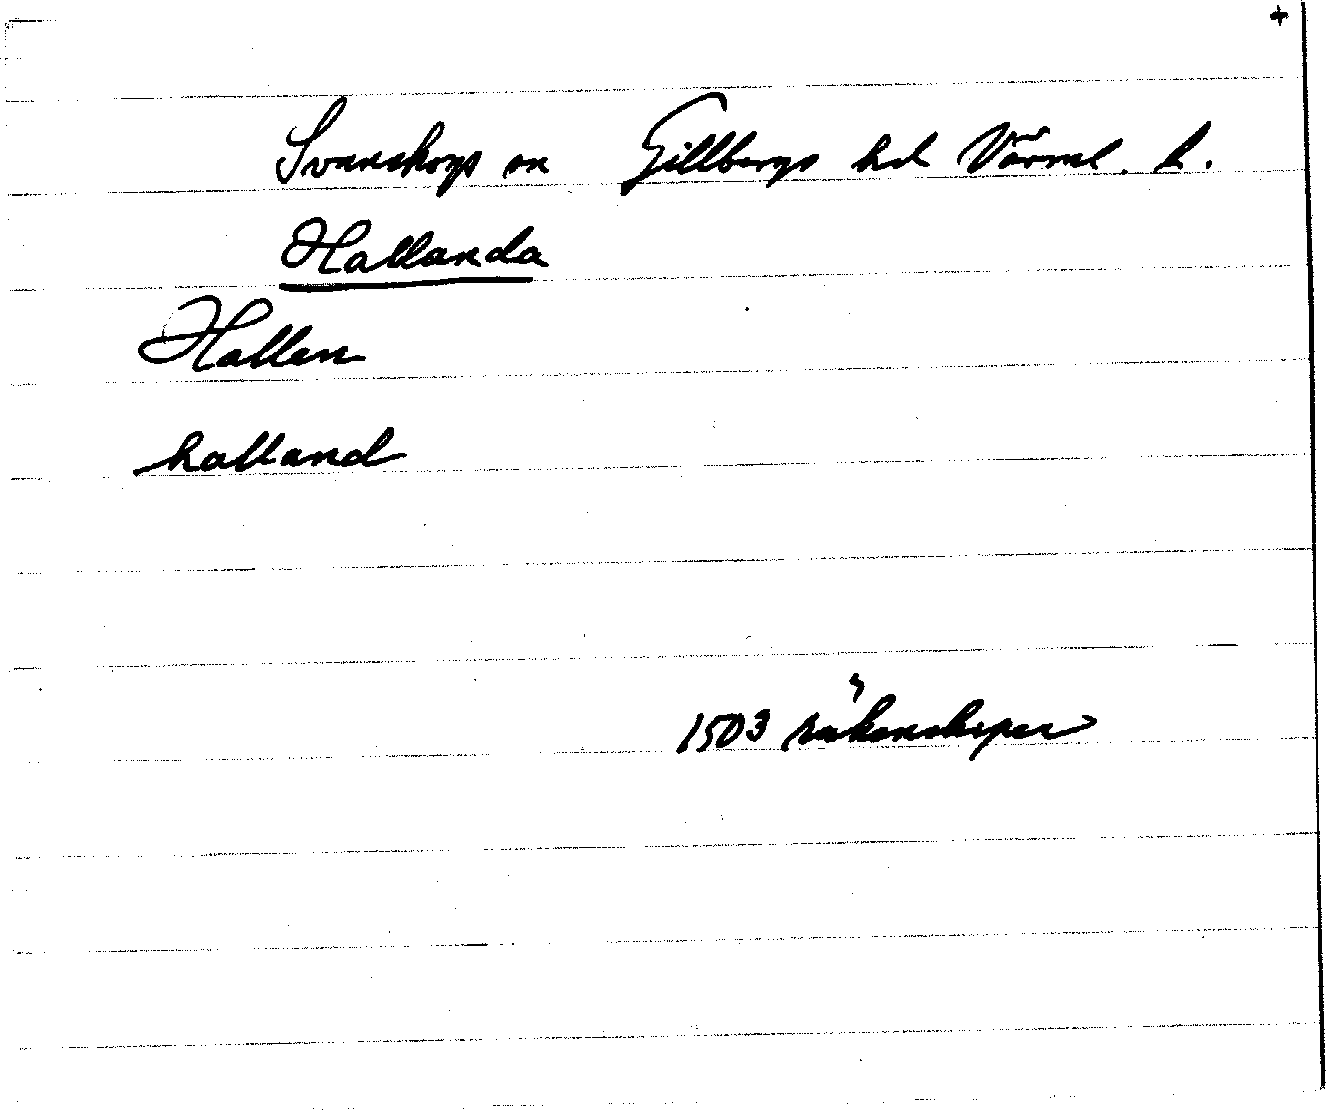 +
Svanskogs sn Gillbergs hd Värml. l.
Hallanda
Hallen
halland
1503 räkenskaper